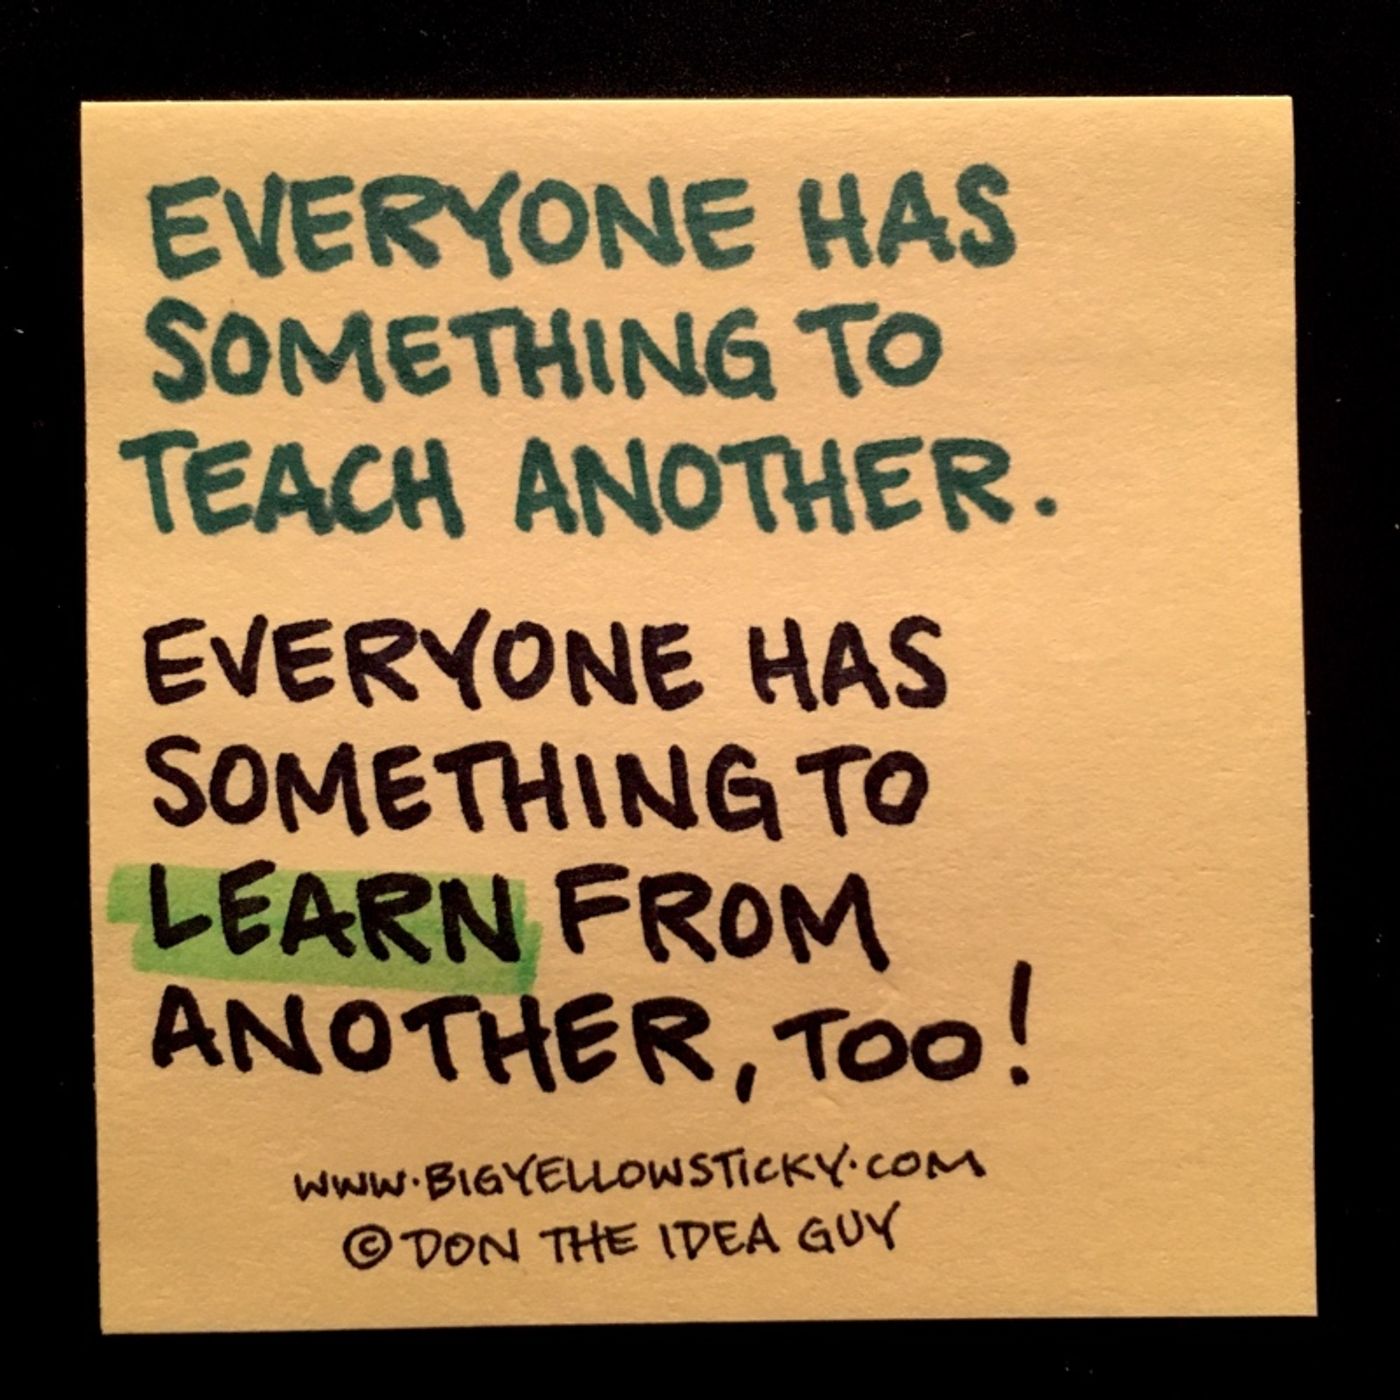 EVERYONE HAS
SOMETHING TO
TEACH ANOTHER.
EVERYONE HAS
SOMETHING TO
LEARN FROM
ANOTHER, TOO!
WWW.BIGYELLOWSTICKY.COM
© DON THE IDEA GUY